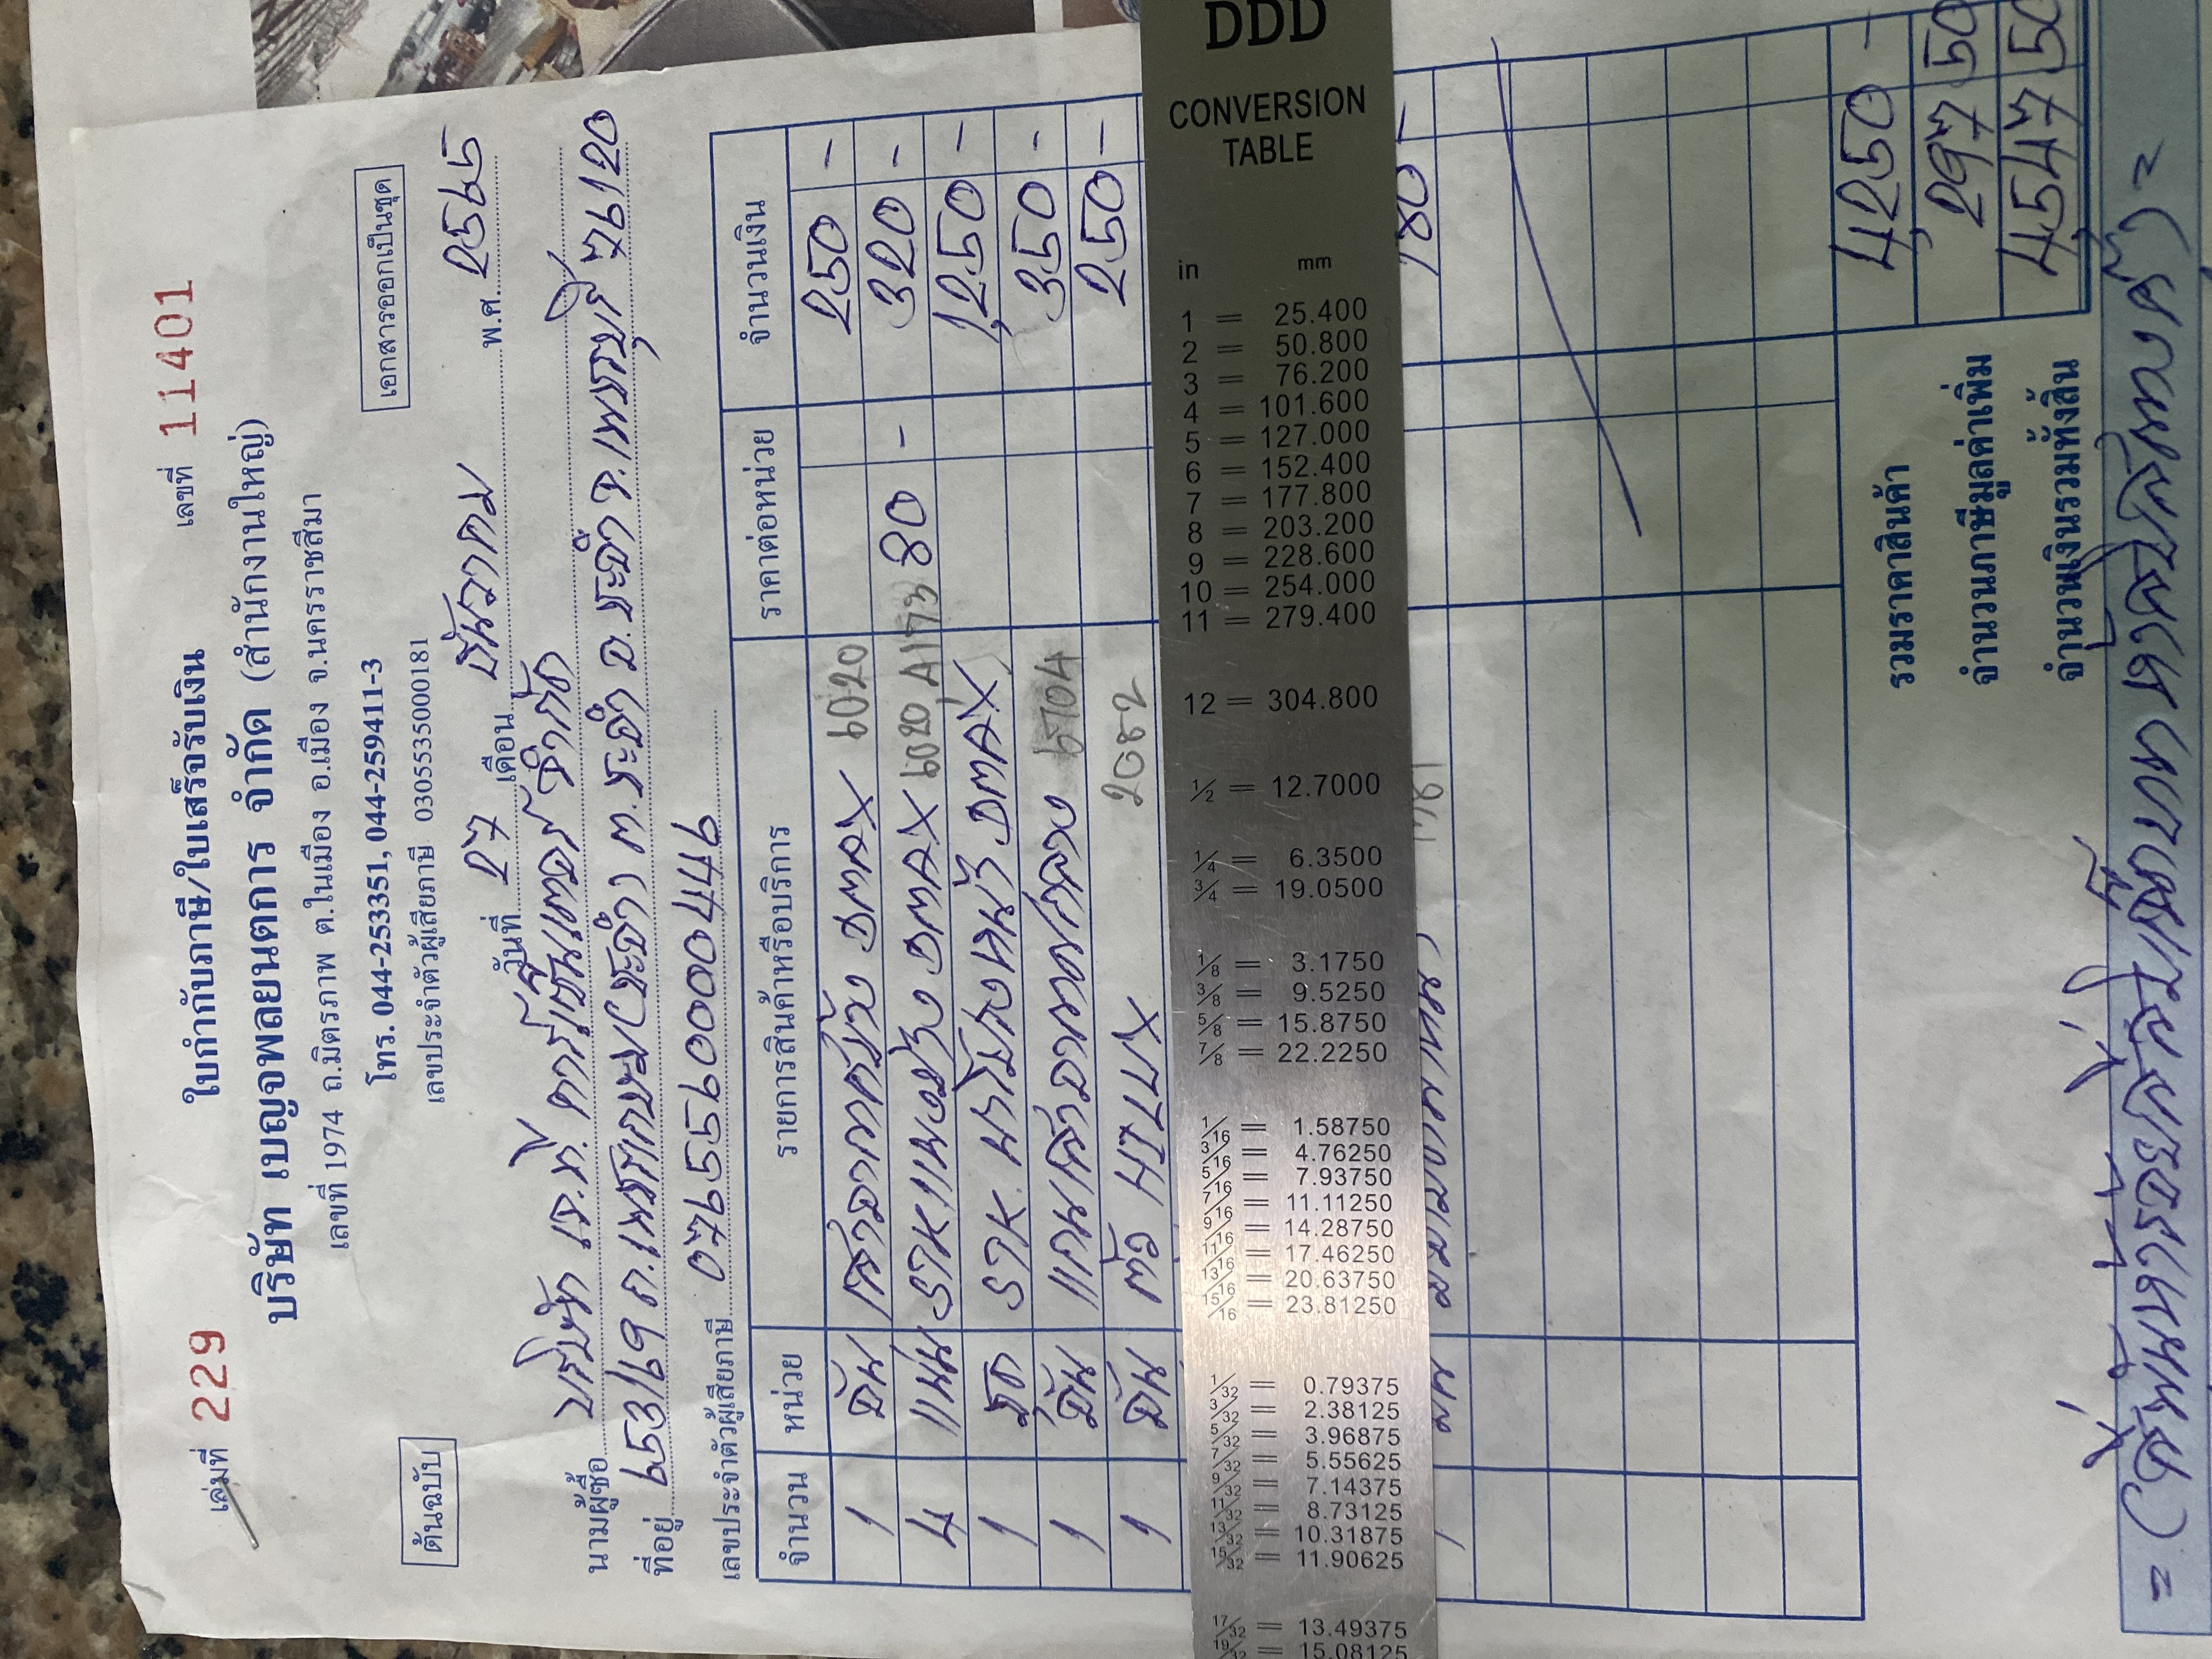 เล่มที่ 229
เลขที่ 11401
ใบกำกับภาษี/ใบเสร็จรับเงิน
บริษัท เบญจพลยนตการ จำกัด (สำนักงานใหญ่)
เลขที่ 1974 ถ.มิตรภาพ ต.ในเมือง อ.เมือง จ.นครราชสีมา
โทร. 044-253351, 044-259411-3
เลขประจำตัวผู้เสียภาษี 0305535000181
ต้นฉบับ
เอกสารออกเป็นชุด
วันที่ 27 เดือน ธันวาคม พ.ศ. 2565
นามผู้ซื้อ บริษัท เจ.ที. คาร์เซ็นเตอร์ จำกัด
ที่อยู่ 653/69 ถ.เพชรเกษม ต.ชะอำ อ.ชะอำ จ.เพชรบุรี 76120
เลขประจำตัวผู้เสียภาษี 0765560000474
จำนวน หน่วย รายการสินค้าหรือบริการ ราคาต่อหน่วย จำนวนเงิน
1 อัน DMAX 6020 250 -
4 แผ่น DMAX 6020 80 - 320 -
1 ชุด DMAX 1,250 -
1 อัน 350 -
1 อัน 2082 250 -
1 180 -
รวมราคาสินค้า 4,250 -
จำนวนภาษีมูลค่าเพิ่ม 297 50
จำนวนเงินรวมทั้งสิ้น 4,547 50
= (สี่พันห้าร้อยสี่สิบเจ็ดบาทห้าสิบสตางค์) =
DDD
CONVERSION
TABLE
in mm
1 = 25.400
2 = 50.800
3 = 76.200
4 = 101.600
5 = 127.000
6 = 152.400
7 = 177.800
8 = 203.200
9 = 228.600
10 = 254.000
11 = 279.400
12 = 304.800
1/2 = 12.7000
1/4 = 6.3500
3/4 = 19.0500
1/8 = 3.1750
3/8 = 9.5250
5/8 = 15.8750
7/8 = 22.2250
1/16 = 1.58750
3/16 = 4.76250
5/16 = 7.93750
7/16 = 11.11250
9/16 = 14.28750
11/16 = 17.46250
13/16 = 20.63750
15/16 = 23.81250
1/32 = 0.79375
3/32 = 2.38125
5/32 = 3.96875
7/32 = 5.55625
9/32 = 7.14375
11/32 = 8.73125
13/32 = 10.31875
15/32 = 11.90625
17/32 = 13.49375
19/32 = 15.08125